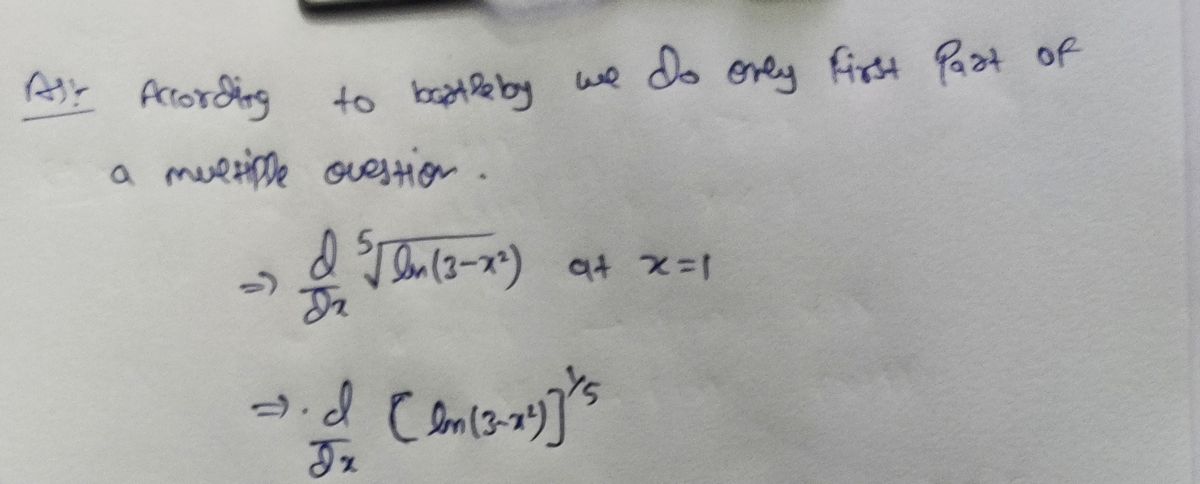 Ans: According to bartleby we do only first part of
a multiple question.
=> d/dx ⁵√ln(3-x²) at x=1
=> . d/dx [ln(3-x²)]^1/5